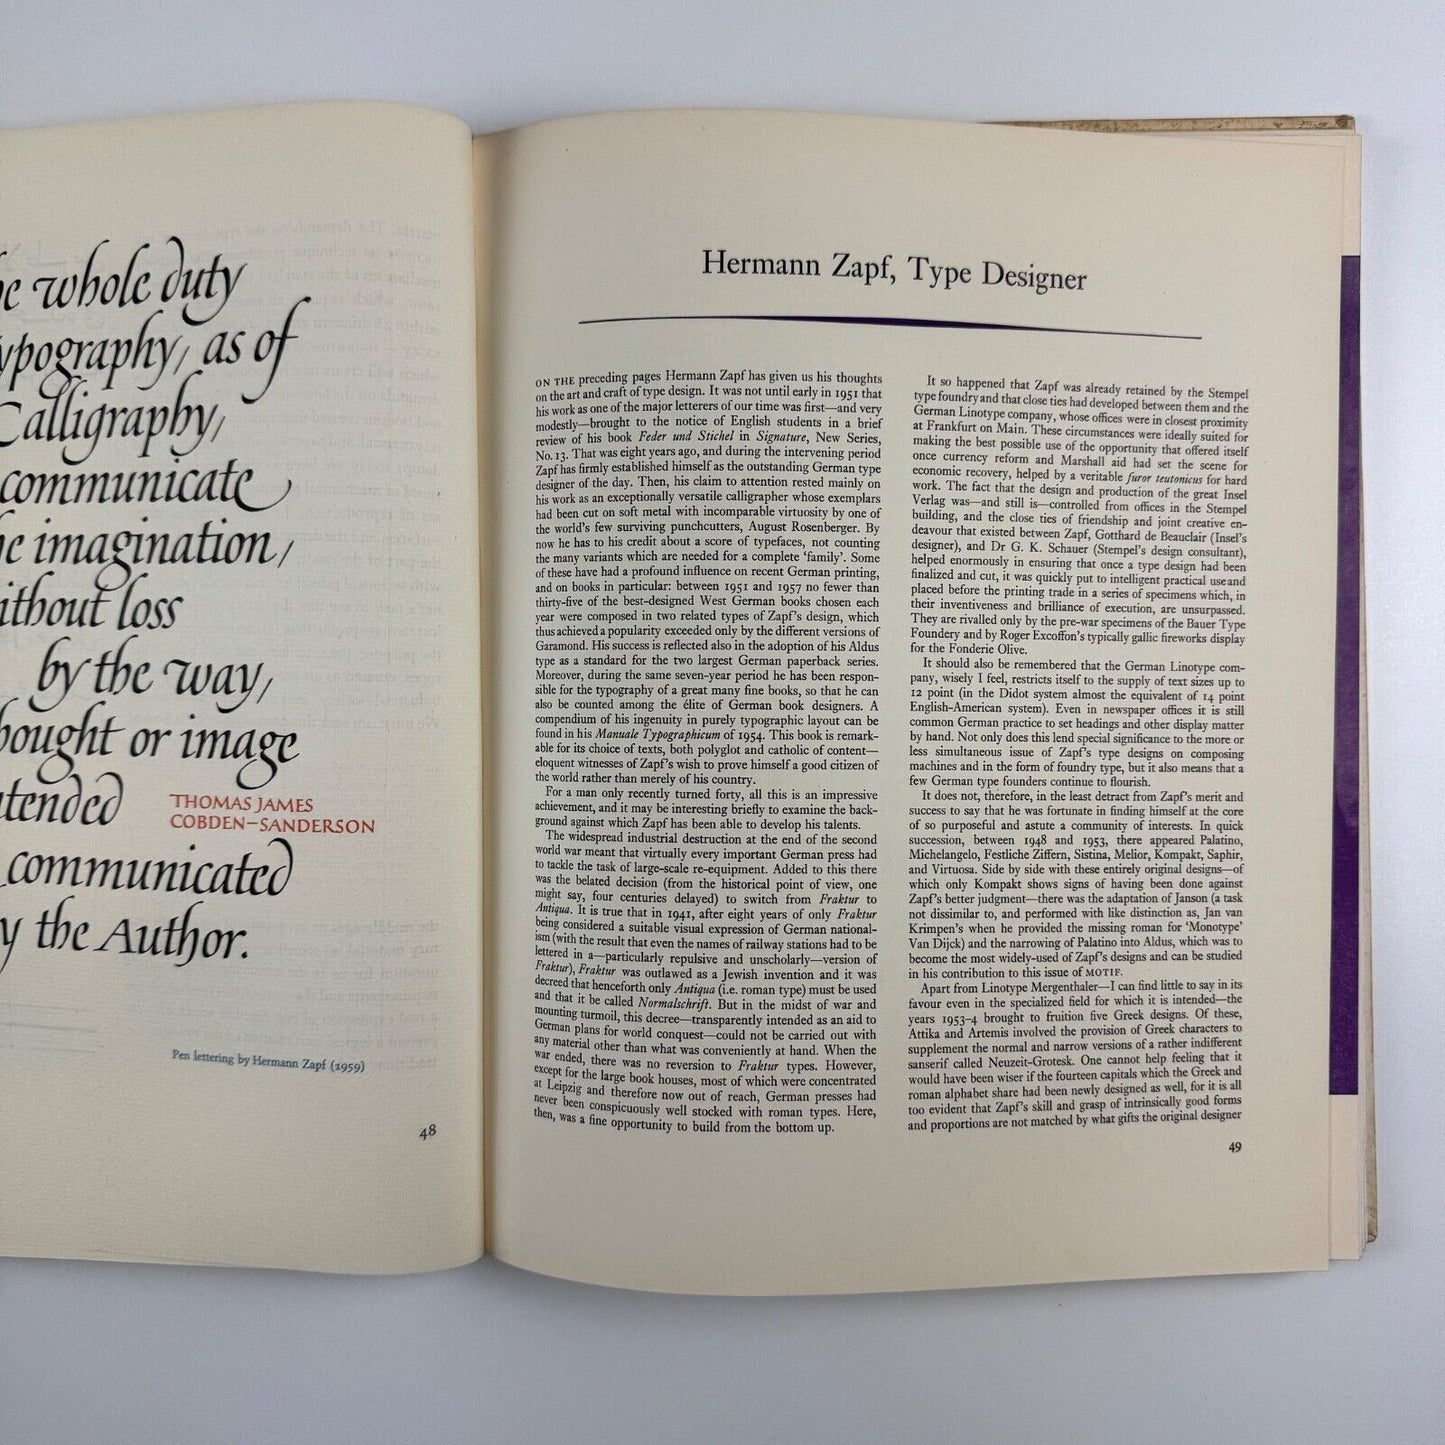 he whole duty
ypography, as of
Calligraphy,
communicate
he imagination,
ithout loss
by the way,
hought or image
ntended
THOMAS JAMES
COBDEN-SANDERSON
communicated
y the Author.
Pen lettering by Hermann Zapf (1959)
48
Hermann Zapf, Type Designer
ON THE preceding pages Hermann Zapf has given us his thoughts
on the art and craft of type design. It was not until early in 1951 that
his work as one of the major letterers of our time was first—and very
modestly—brought to the notice of English students in a brief
review of his book Feder und Stichel in Signature, New Series,
No. 13. That was eight years ago, and during the intervening period
Zapf has firmly established himself as the outstanding German type
designer of the day. Then, his claim to attention rested mainly on
his work as an exceptionally versatile calligrapher whose exemplars
had been cut on soft metal with incomparable virtuosity by one of
the world's few surviving punchcutters, August Rosenberger. By
now he has to his credit about a score of typefaces, not counting
the many variants which are needed for a complete 'family'. Some
of these have had a profound influence on recent German printing,
and on books in particular: between 1951 and 1957 no fewer than
thirty-five of the best-designed West German books chosen each
year were composed in two related types of Zapf's design, which
thus achieved a popularity exceeded only by the different versions of
Garamond. His success is reflected also in the adoption of his Aldus
type as a standard for the two largest German paperback series.
Moreover, during the same seven-year period he has been respon-
sible for the typography of a great many fine books, so that he can
also be counted among the élite of German book designers. A
compendium of his ingenuity in purely typographic layout can be
found in his Manuale Typographicum of 1954. This book is remark-
able for its choice of texts, both polyglot and catholic of content—
eloquent witnesses of Zapf's wish to prove himself a good citizen of
the world rather than merely of his country.
For a man only recently turned forty, all this is an impressive
achievement, and it may be interesting briefly to examine the back-
ground against which Zapf has been able to develop his talents.
The widespread industrial destruction at the end of the second
world war meant that virtually every important German press had
to tackle the task of large-scale re-equipment. Added to this there
was the belated decision (from the historical point of view, one
might say, four centuries delayed) to switch from Fraktur to
Antiqua. It is true that in 1941, after eight years of only Fraktur
being considered a suitable visual expression of German national-
ism (with the result that even the names of railway stations had to be
lettered in a—particularly repulsive and unscholarly—version of
Fraktur), Fraktur was outlawed as a Jewish invention and it was
decreed that henceforth only Antiqua (i.e. roman type) must be used
and that it be called Normalschrift. But in the midst of war and
mounting turmoil, this decree—transparently intended as an aid to
German plans for world conquest—could not be carried out with
any material other than what was conveniently at hand. When the
war ended, there was no reversion to Fraktur types. However,
except for the large book houses, most of which were concentrated
at Leipzig and therefore now out of reach, German presses had
never been conspicuously well stocked with roman types. Here,
then, was a fine opportunity to build from the bottom up.
It so happened that Zapf was already retained by the Stempel
type foundry and that close ties had developed between them and the
German Linotype company, whose offices were in closest proximity
at Frankfurt on Main. These circumstances were ideally suited for
making the best possible use of the opportunity that offered itself
once currency reform and Marshall aid had set the scene for
economic recovery, helped by a veritable furor teutonicus for hard
work. The fact that the design and production of the great Insel
Verlag was—and still is—controlled from offices in the Stempel
building, and the close ties of friendship and joint creative en-
deavour that existed between Zapf, Gotthard de Beauclair (Insel's
designer), and Dr G. K. Schauer (Stempel's design consultant),
helped enormously in ensuring that once a type design had been
finalized and cut, it was quickly put to intelligent practical use and
placed before the printing trade in a series of specimens which, in
their inventiveness and brilliance of execution, are unsurpassed.
They are rivalled only by the pre-war specimens of the Bauer Type
Foundery and by Roger Excoffon's typically gallic fireworks display
for the Fonderie Olive.
It should also be remembered that the German Linotype com-
pany, wisely I feel, restricts itself to the supply of text sizes up to
12 point (in the Didot system almost the equivalent of 14 point
English-American system). Even in newspaper offices it is still
common German practice to set headings and other display matter
by hand. Not only does this lend special significance to the more or
less simultaneous issue of Zapf's type designs on composing
machines and in the form of foundry type, but it also means that a
few German type founders continue to flourish.
It does not, therefore, in the least detract from Zapf's merit and
success to say that he was fortunate in finding himself at the core
of so purposeful and astute a community of interests. In quick
succession, between 1948 and 1953, there appeared Palatino,
Michelangelo, Festliche Ziffern, Sistina, Melior, Kompakt, Saphir,
and Virtuosa. Side by side with these entirely original designs—of
which only Kompakt shows signs of having been done against
Zapf's better judgment—there was the adaptation of Janson (a task
not dissimilar to, and performed with like distinction as, Jan van
Krimpen's when he provided the missing roman for 'Monotype'
Van Dijck) and the narrowing of Palatino into Aldus, which was to
become the most widely-used of Zapf's designs and can be studied
in his contribution to this issue of MOTIF.
Apart from Linotype Mergenthaler—I can find little to say in its
favour even in the specialized field for which it is intended—the
years 1953-4 brought to fruition five Greek designs. Of these,
Attika and Artemis involved the provision of Greek characters to
supplement the normal and narrow versions of a rather indifferent
sanserif called Neuzeit-Grotesk. One cannot help feeling that it
would have been wiser if the fourteen capitals which the Greek and
roman alphabet share had been newly designed as well, for it is all
too evident that Zapf's skill and grasp of intrinsically good forms
and proportions are not matched by what gifts the original designer
49